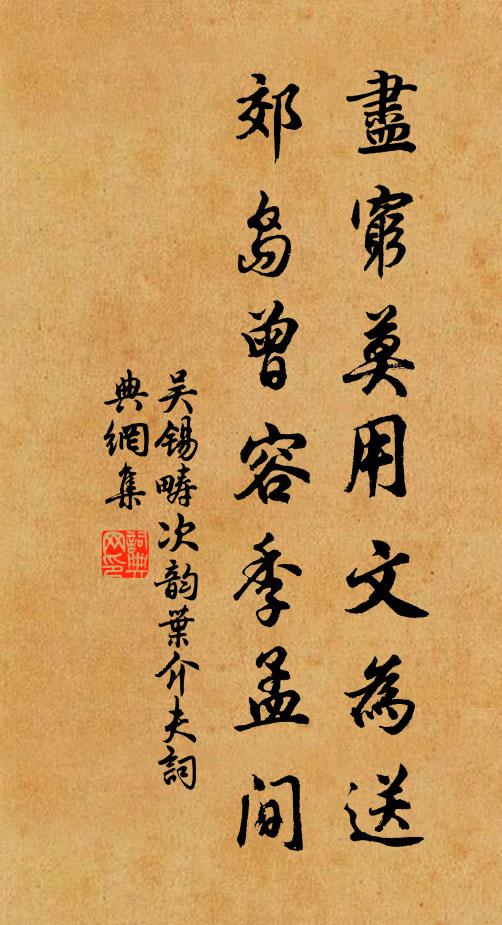 盡窮莫用文為送
郊島曾容季孟間
吴錫疇次韵葉介夫詞
典網集
詞典
网印